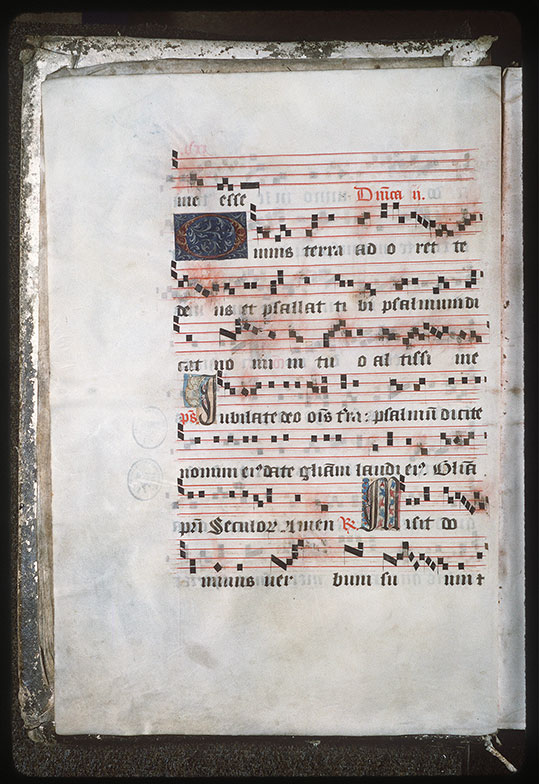 me esse Dn̄ica ii.
Omnis terra ad o ret te
de us et psallat ti bi psalmum di
cat no mi ni tu o al tissi me
ps. Jubilate deo oīs t̄ra: psalmū dicite
nomini eiꝰ date gl̄iam laudi eiꝰ. Gl̄ia
pr̄i Seculoꝝ Amen ℟. Misit do
minus ver bum su um ⁊